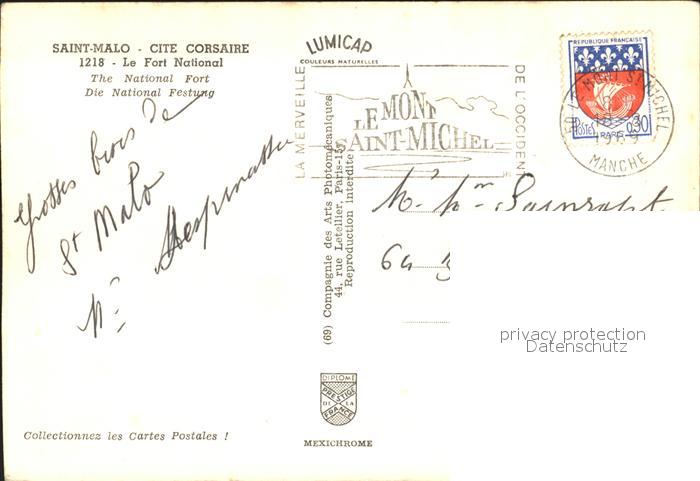 SAINT-MALO - CITE CORSAIRE
1218 - Le Fort National
The National Fort
Die National Festung
Grosses bises de
St Malo
Collectionnez les Cartes Postales !
LUMICAP
COULEURS NATURELLES
LA MERVEILLE
LE MONT
SAINT-MICHEL
DE L'OCCIDENT
(69) Compagnie des Arts Photomécaniques
44, rue Letellier, Paris-15e
Reproduction Interdite
DIPLOME
PRESTIGE
DE LA
FRANCE
MEXICHROME
REPUBLIQUE FRANÇAISE
POSTES
0,30
PARIS
50 LE MONT ST MICHEL
MANCHE
64
privacy protection
Datenschutz